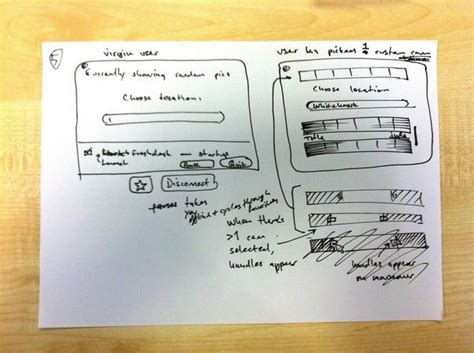 5
virgin user
Currently showing random pics
Choose location:
on startup
Quit
Disconnect
takes
you offline + cycles through favourites
user has picked 1 custom cam
Choose location
Title
When there's
>1 cam
selected,
handles appear
handles appear
on mouseover